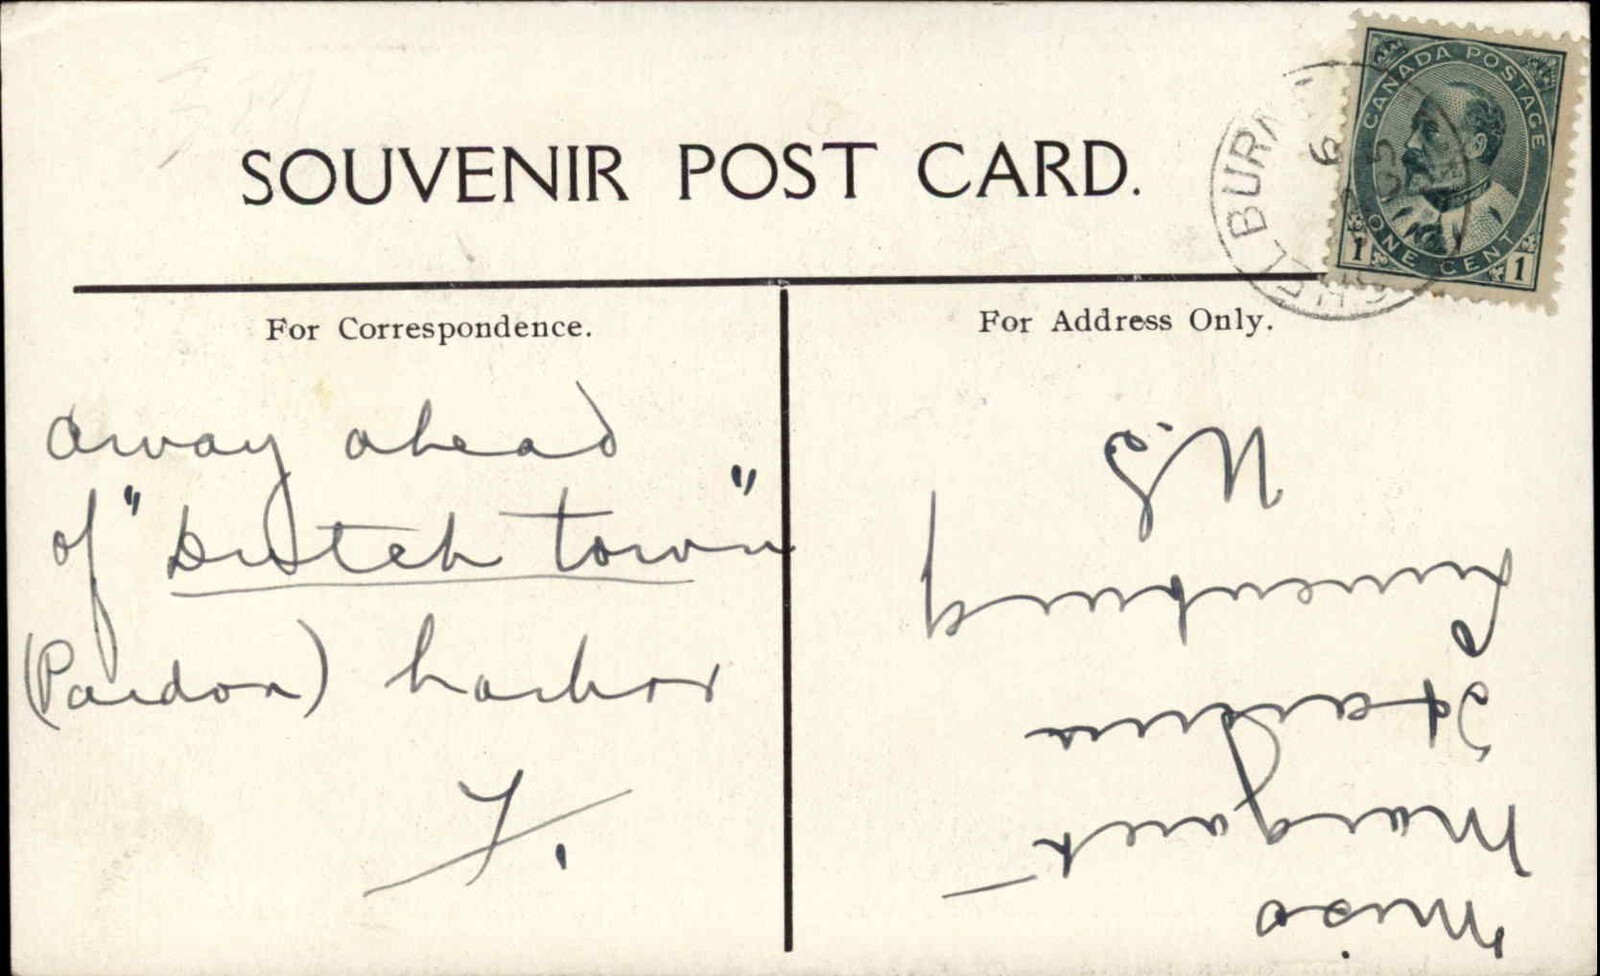 SOUVENIR POST CARD.
CANADA POSTAGE
ONE CENT
1 1
For Correspondence.
For Address Only.
away ahead
of "Dutch town"
(Pardon) harbor
F.
Miss
Margaret
Lunenburg
N.S.